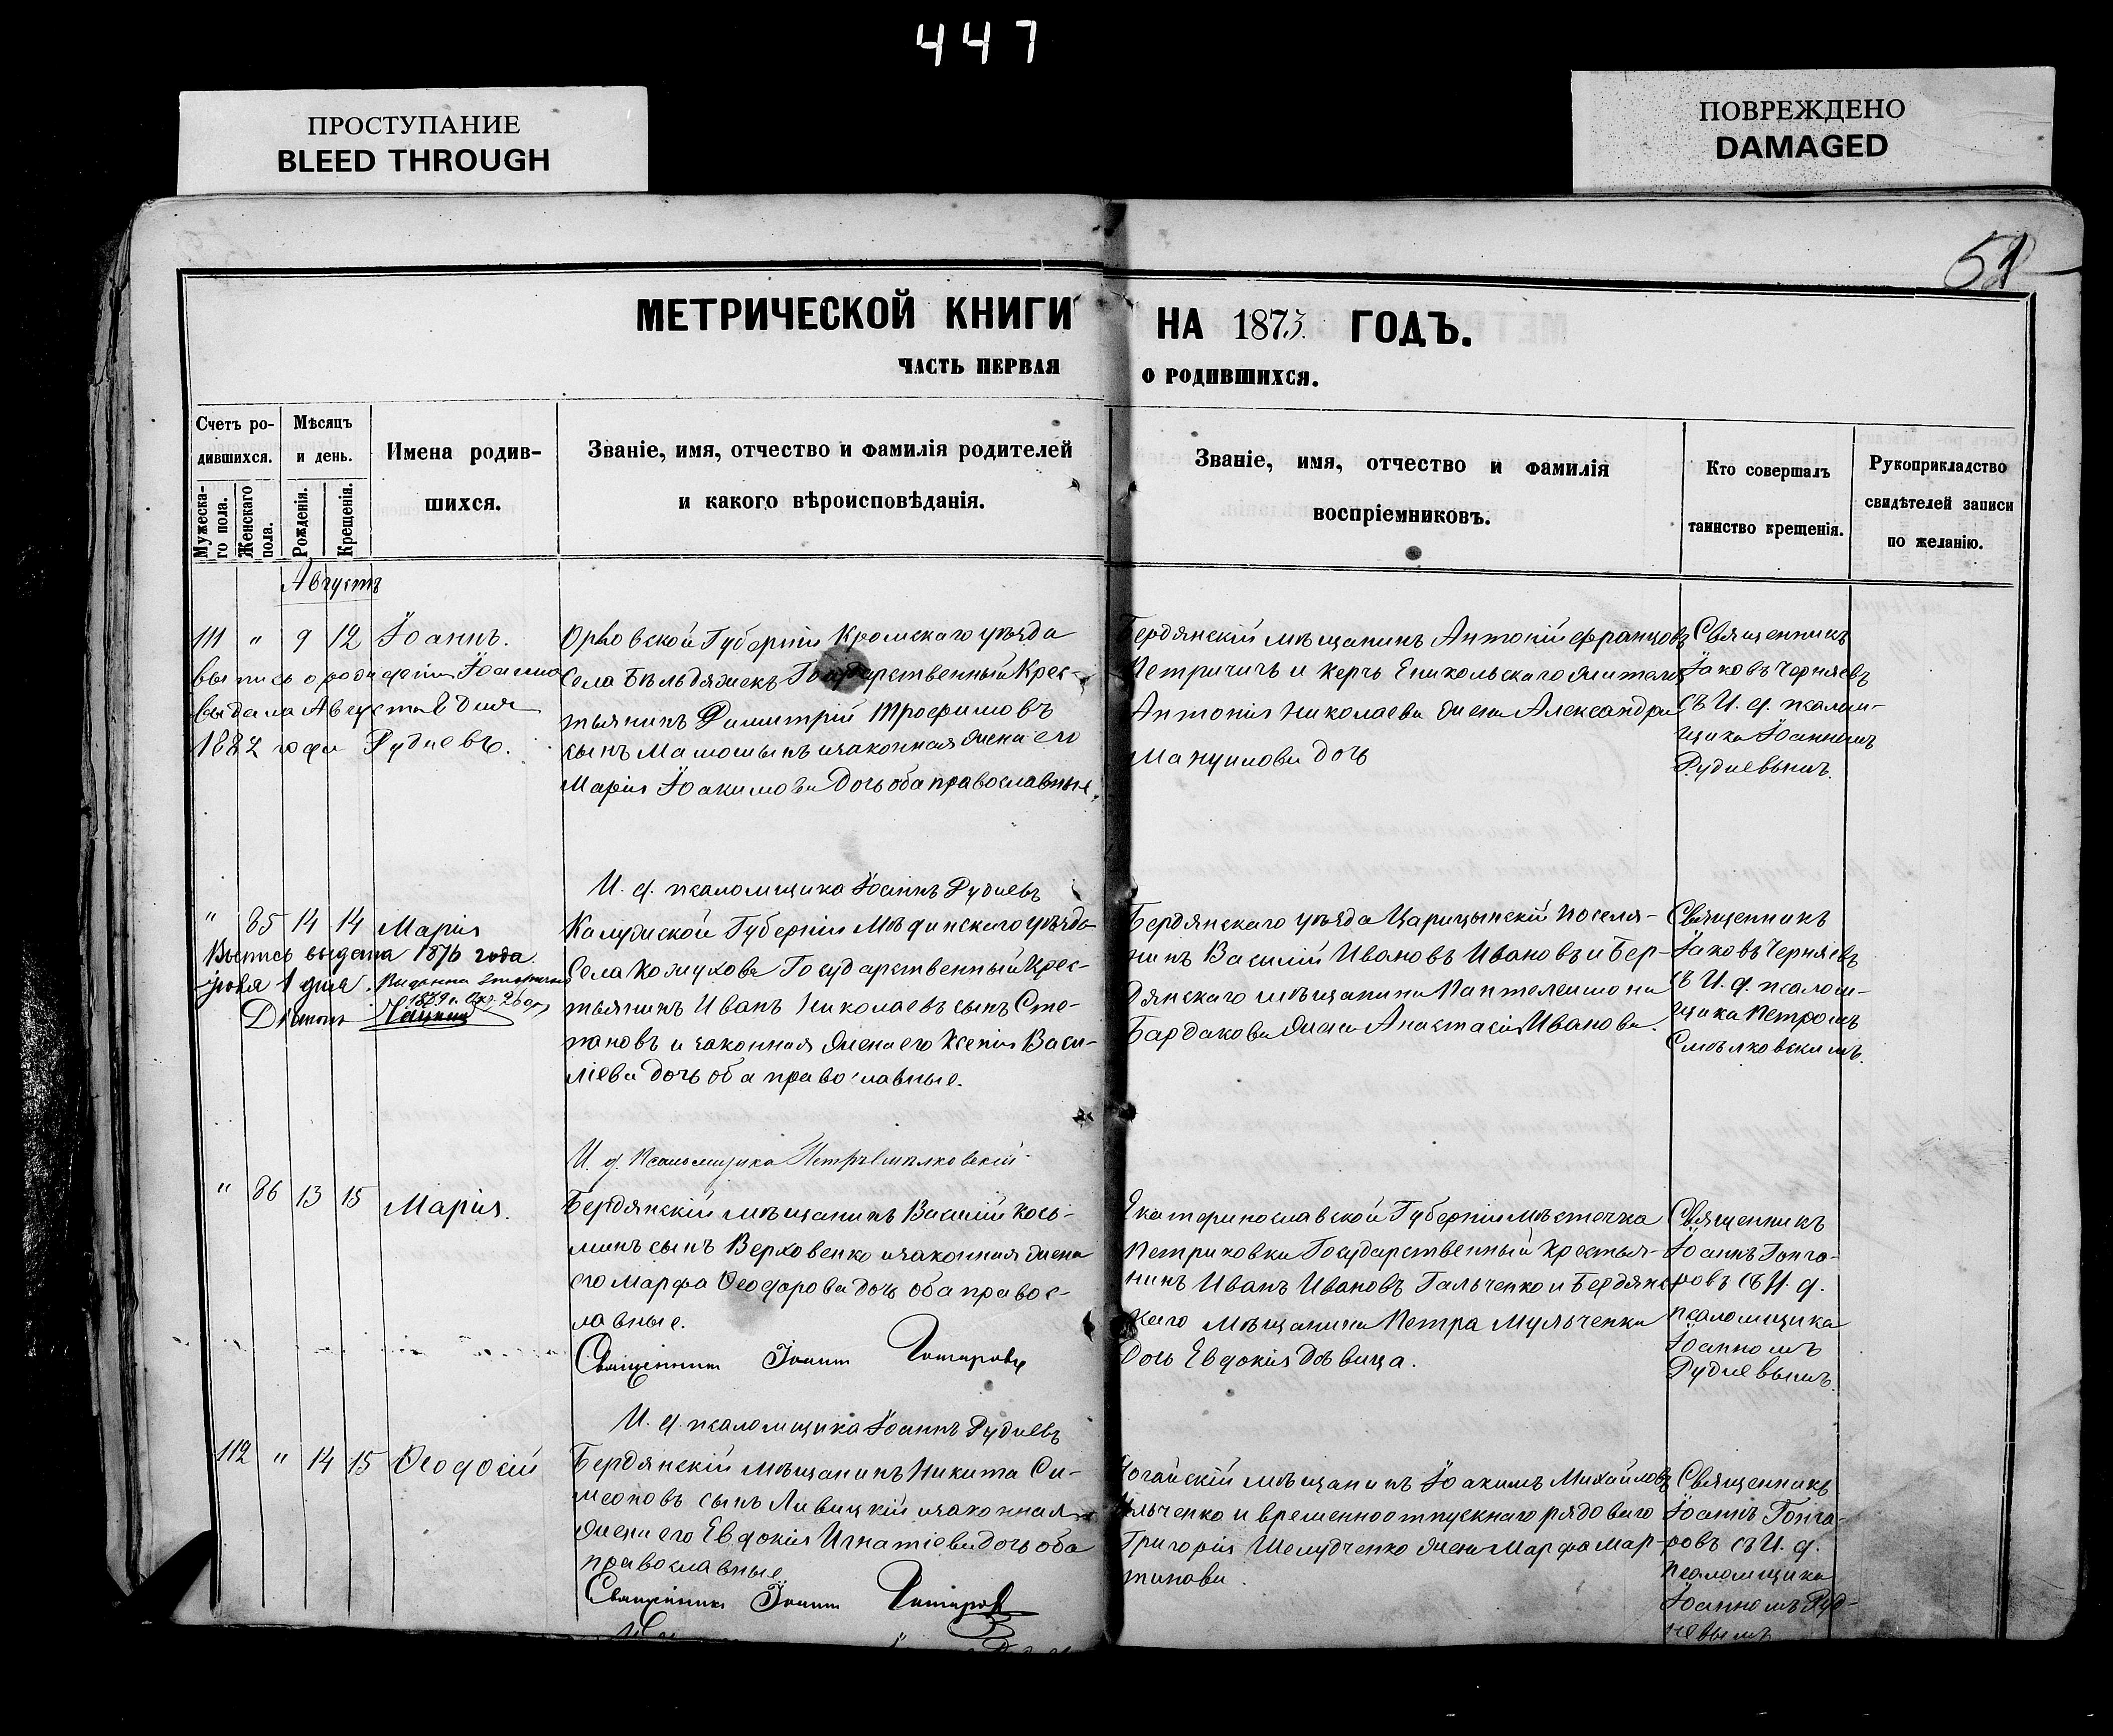 447
ПРОСТУПАНИЕ
BLEED THROUGH
ПОВРЕЖДЕНО
DAMAGED
МЕТРИЧЕСКОЙ КНИГИ НА 1873. ГОДЪ.
ЧАСТЬ ПЕРВАЯ О РОДИВШИХСЯ.
Счетъ ро-
дившихся.
Мужеска-
го пола.
Женскаго
пола.
Мѣсяцъ
и день.
Рожденія.
Крещенія.
Имена родив-
шихся.
Званіе, имя, отчество и фамилія родителей
и какого вѣроисповѣданія.
Званіе, имя, отчество и фамилія
воспріемниковъ.
Кто совершалъ
таинство крещенія.
Рукоприкладство
свидѣтелей записи
по желанію.
Августъ
111 " 9 12 Іоаннъ.
выпись о рожденіи Іоанна
выдана Августа дня
1882 года Рудневъ.
Орловской Губерніи Кромскаго уѣзда
Села Бѣльдяжекъ Государственный Крес-
тьянинъ Димитрій Трофимовъ
сынъ и законная жена его
Марія Іоакимова дочь оба православные.
Бердянскій мѣщанинъ Антоній Францовъ
Петричичъ и Керчь Еникольскаго жителя
Антонія Николаева жена Александра
Мануилова дочь
Священникъ
Іаковъ Черняевъ
съ И. д. псалом-
щика Іоанномъ
Рудневымъ.
И. д. псаломщика Іоаннъ Рудневъ
" 85 14 14 Марія
Выпись выдана 1876 года
1 дня. Выдана вторично
1889 г.
Калужской Губерніи Мѣдынскаго уѣзда
Села Кожухова Государственный Крес-
тьянинъ Иванъ Николаевъ сынъ Сте-
пановъ и законная жена его Ксенія Васи-
ліева дочь оба православные.
Бердянскаго уѣзда Царицынскій поселя-
нинъ Василій Ивановъ Ивановъ и Бер-
дянскаго мѣщанина Пантелеимона
Бардакова жена Анастасія Иванова.
Священникъ
Іаковъ Черняевъ
съ И. д. псалом-
щика Петромъ
Смѣлковскимъ.
И. д. Псаломщика Петръ Смѣлковскій
" 86 13 15 Марія.
Бердянскій мѣщанинъ Василій Козь-
минъ сынъ Верховенко и законная жена
его Марфа Ѳеодорова дочь оба правос-
лавные.
Священникъ Іоаннъ Гончаровъ
Екатеринославской Губерніи мѣстечка
Петриковки Государственный Крестья-
нинъ Иванъ Ивановъ Гальченко и Бердянс-
каго мѣщанина Петра Мульченка
дочь Евдокія дѣвица.
Священникъ
Іоаннъ Гонча-
ровъ съ И. д.
псаломщика
Іоанномъ
Рудневымъ.
И. д. псаломщика Іоаннъ Рудневъ
112 " 14 15 Ѳеодосій
Бердянскій мѣщанинъ Никита Си-
меоновъ сынъ Ливицкій и законная
жена его Евдокія Игнатіева дочь оба
православные
Священникъ Іоаннъ Гончаровъ
Ногайскій мѣщанинъ Іоакимъ Михайловъ
Ильченко и временноотпускнаго рядоваго
Григорія Шелудченко жена Марфа Мар-
тинова.
Священникъ
Іоаннъ Гонча-
ровъ съ И. д.
псаломщика
Іоанномъ Руд-
невымъ